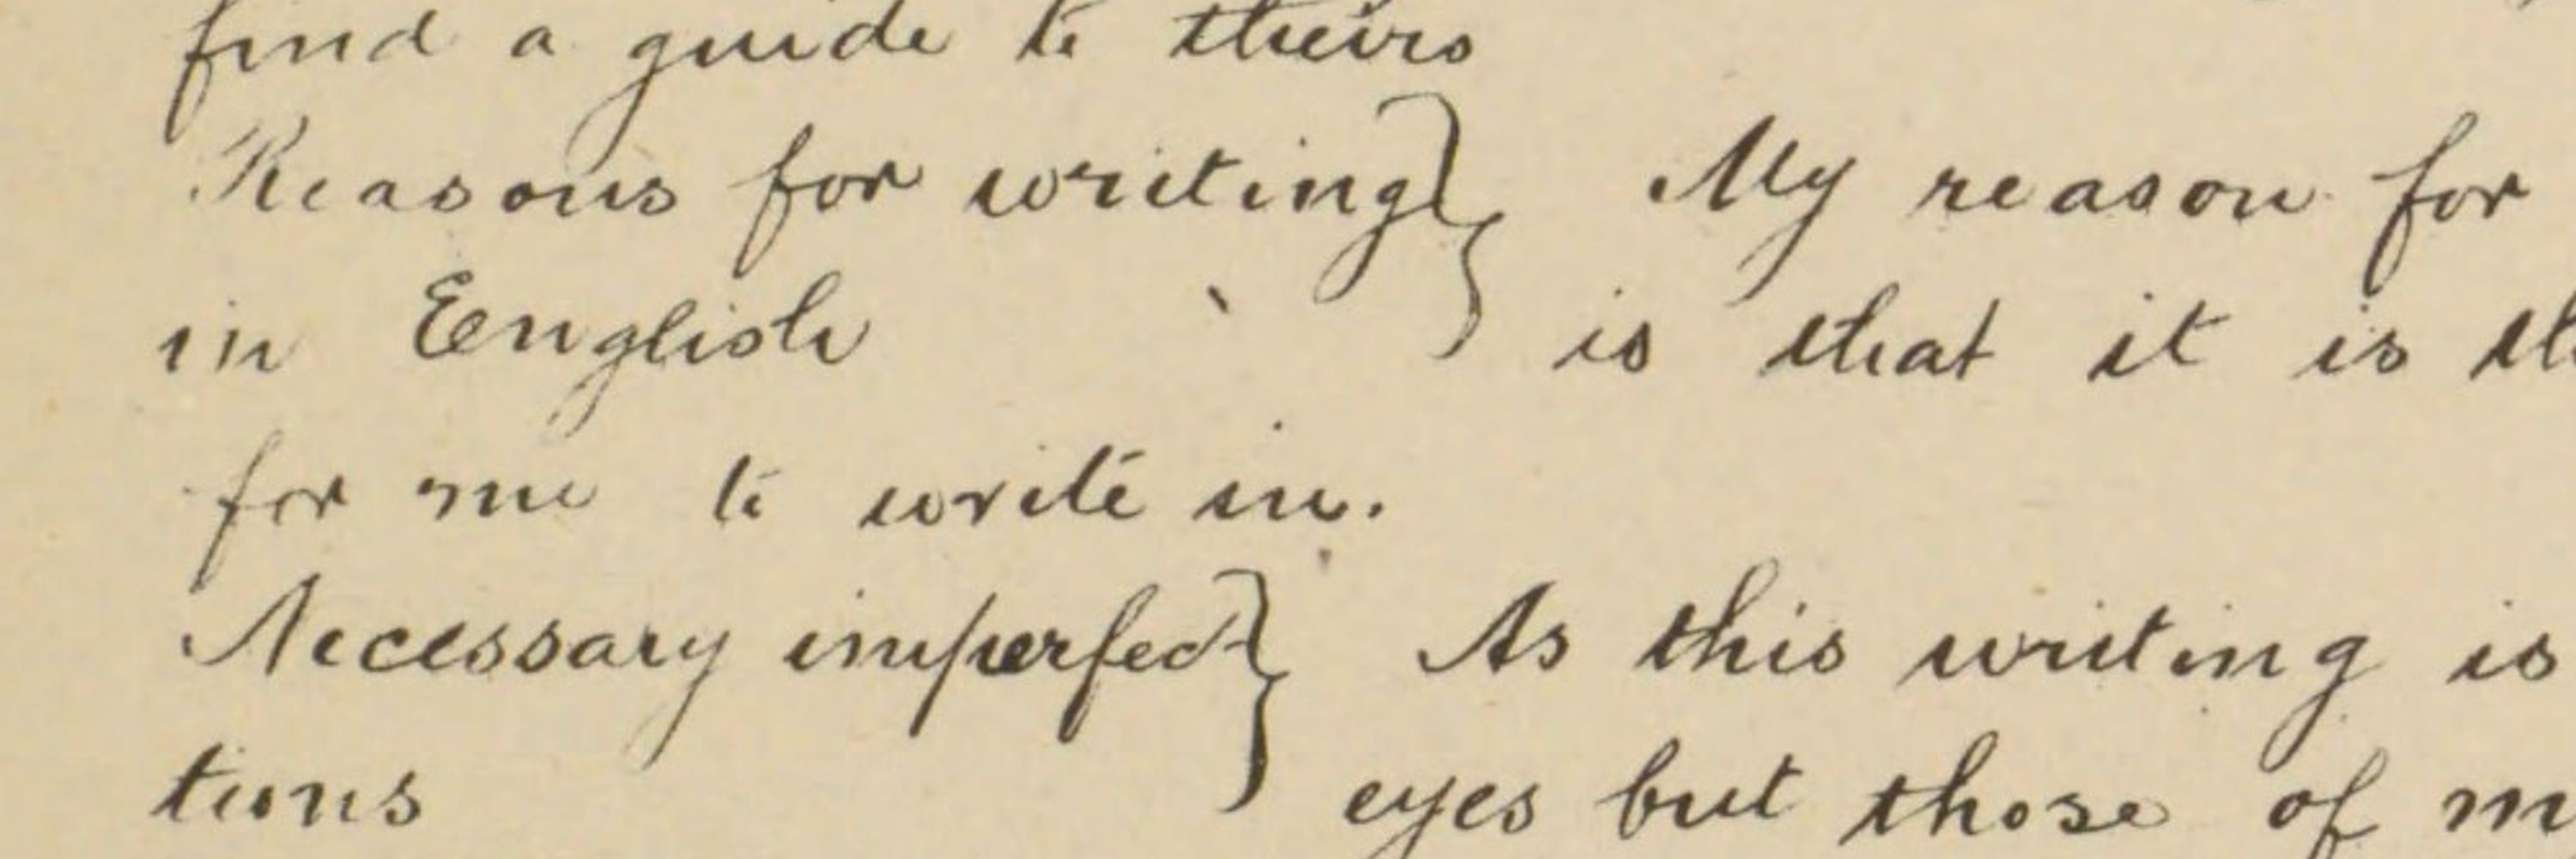 find a guide to theirs
Reasons for writing } My reason for
in English } is that it is
for me to write in.
Necessary imperfec- } As this writing is
tions } eyes but those of